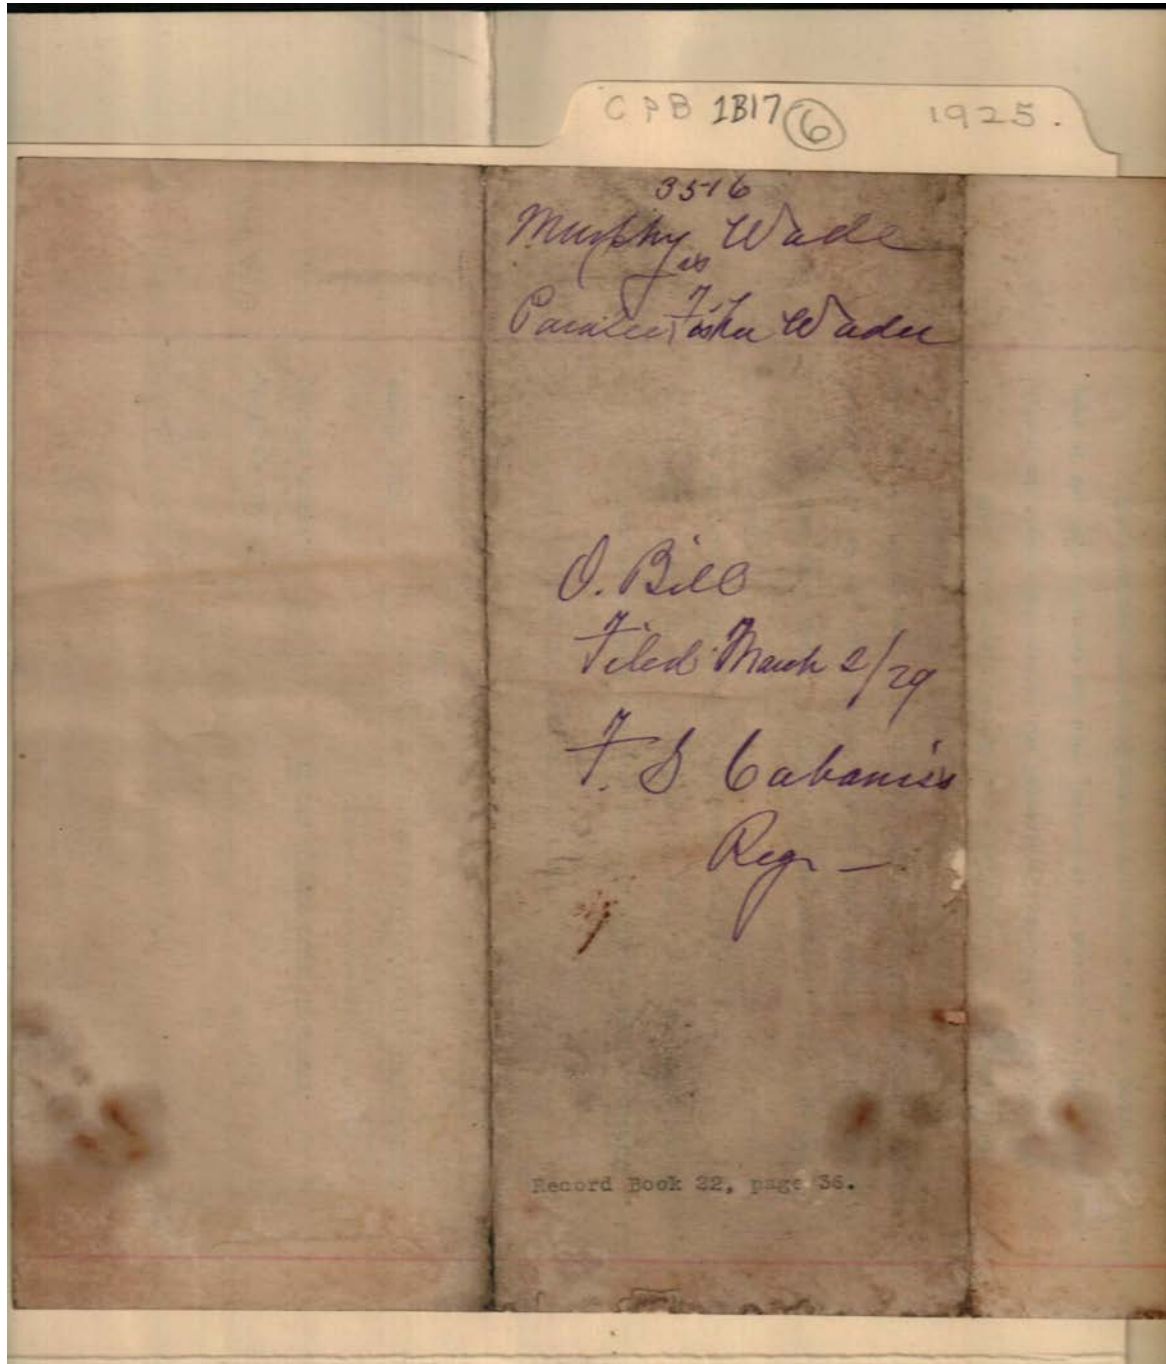 CPB 1B17 6 1925.
3516
Murphy Wade
vs
Wade
O. Bill
Filed March 2/29
F. S Cabaniss
Regr —
Record Book 22, page 36.